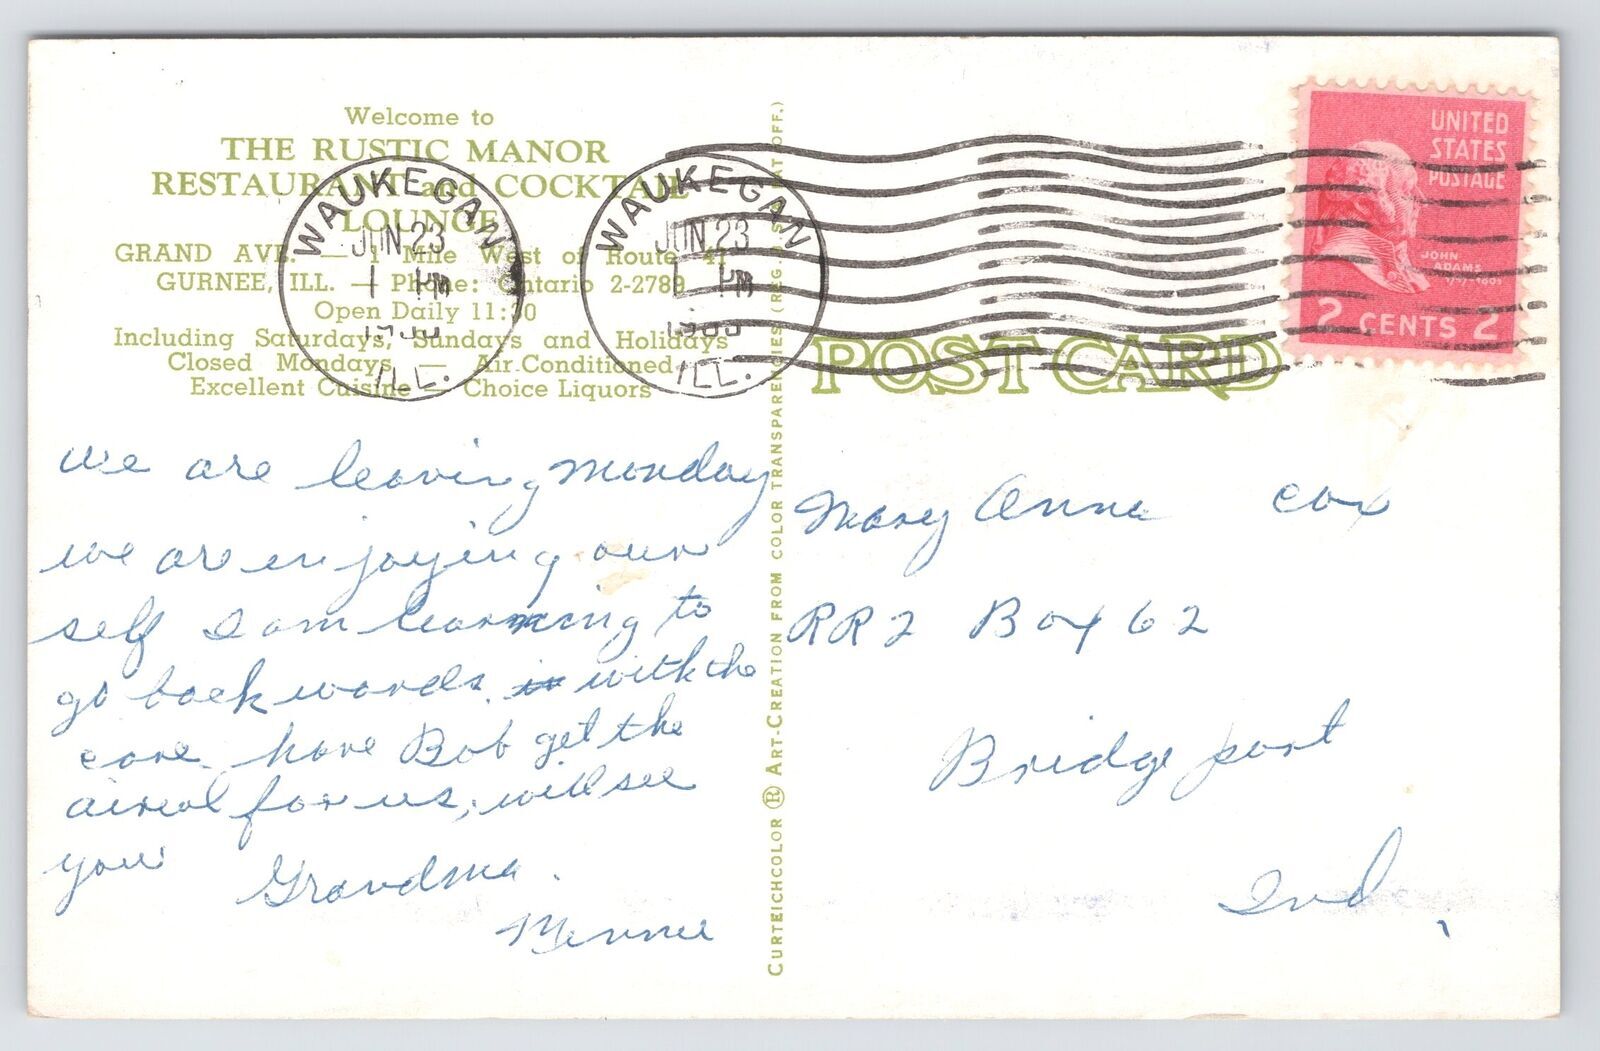 Welcome to
THE RUSTIC MANOR
RESTAURANT and COCKTAIL
LOUNGE
GRAND AVE. — 1 Mile West of Route 41
GURNEE, ILL. — Phone: Ontario 2-2789
Open Daily 11:30
Including Saturdays, Sundays and Holidays
Closed Mondays — Air-Conditioned
Excellent Cuisine — Choice Liquors
WAUKEGAN
JUN 23
1 PM
ILL.
WAUKEGAN
JUN 23
1 PM
ILL.
UNITED
STATES
POSTAGE
JOHN
ADAMS
1797-1801
2 CENTS 2
POST CARD
we are leaving Monday
we are enjoying our
self I am learning to
go back words. with the
care. have Bob get the
aireal for us, will see
you
Grandma.
Minnie
CURTEICHCOLOR ® ART-CREATION FROM COLOR TRANSPARENCIES (REG. U.S. PAT. OFF.)
Mary Anna Cox
RR2 Box 62
Bridgeport
Ind.